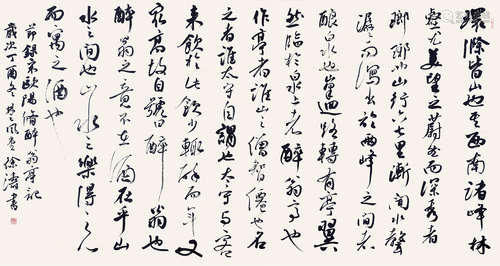 環滁皆山也其西南諸峰林
壑尤美望之蔚然而深秀者
瑯琊也山行六七里漸聞水聲
潺潺而瀉出於兩峰之間者
釀泉也峯迴路轉有亭翼
然臨於泉上者醉翁亭也
作亭者誰山之僧智僊也名
之者誰太守自謂也太守與客
來飲於此飲少輒醉而年又
最高故自號曰醉翁也
醉翁之意不在酒在乎山
水之間也山水之樂得之心
而寓之酒也
節錄宋歐陽脩醉翁亭記
歲次丁酉冬 徐濤書